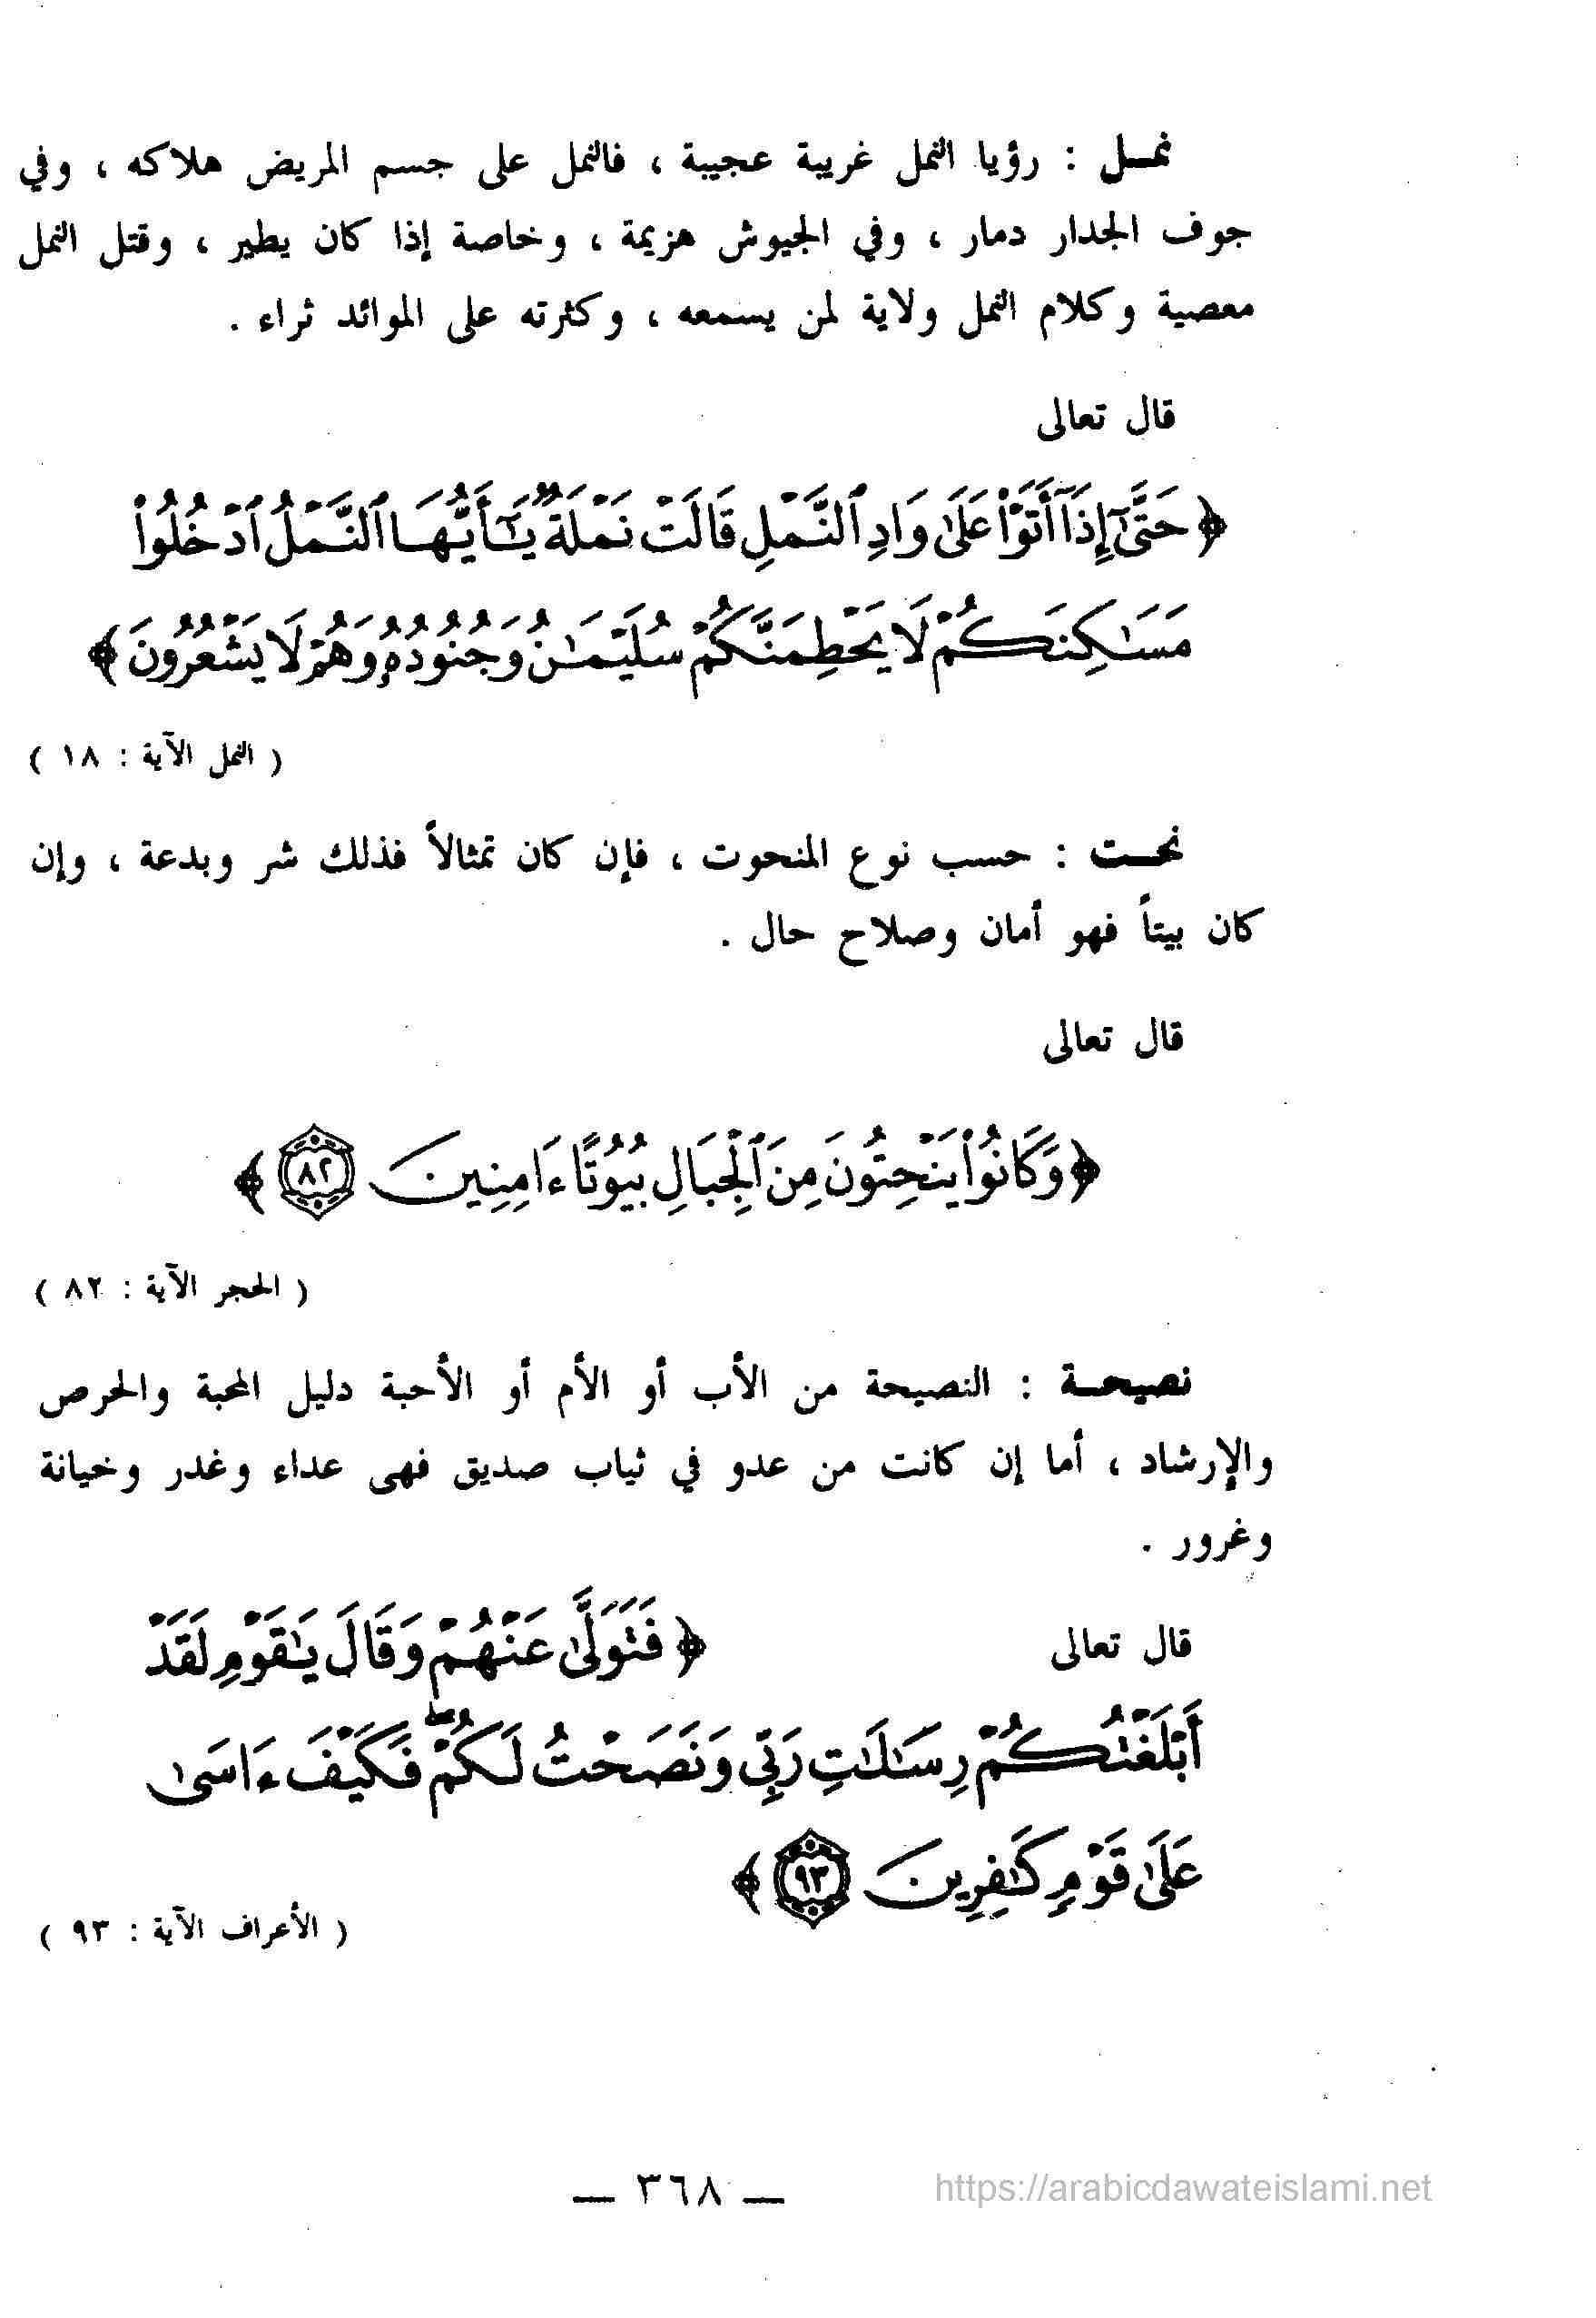 نمـل : رؤيا النمل غريبة عجيبة ، فالنمل على جسم المريض هلاكه ، وفي
جوف الجدار دمار ، وفي الجيوش هزيمة ، وخاصة إذا كان يطير ، وقتل النمل
معصية وكلام النمل ولاية لمن يسمعه ، وكثرته على الموائد ثراء .
قال تعالى
﴿ حَتَّىٰٓ إِذَآ أَتَوْا۟ عَلَىٰ وَادِ ٱلنَّمْلِ قَالَتْ نَمْلَةٌ يَـٰٓأَيُّهَا ٱلنَّمْلُ ٱدْخُلُوا۟
مَسَـٰكِنَكُمْ لَا يَحْطِمَنَّكُمْ سُلَيْمَـٰنُ وَجُنُودُهُۥ وَهُمْ لَا يَشْعُرُونَ ﴾
( النمل الآية : ١٨ )
نحـت : حسب نوع المنحوت ، فإن كان تمثالاً فذلك شر وبدعة ، وإن
كان بيتاً فهو أمان وصلاح حال .
قال تعالى
﴿ وَكَانُوا۟ يَنْحِتُونَ مِنَ ٱلْجِبَالِ بُيُوتًا ءَامِنِينَ ٨٢ ﴾
( الحجر الآية : ٨٢ )
نصيحـة : النصيحة من الأب أو الأم أو الأحبة دليل المحبة والحرص
والإرشاد ، أما إن كانت من عدو في ثياب صديق فهى عداء وغدر وخيانة
وغرور .
قال تعالى ﴿ فَتَوَلَّىٰ عَنْهُمْ وَقَالَ يَـٰقَوْمِ لَقَدْ
أَبْلَغْتُكُمْ رِسَـٰلَـٰتِ رَبِّى وَنَصَحْتُ لَكُمْ ۖ فَكَيْفَ ءَاسَىٰ
عَلَىٰ قَوْمٍ كَـٰفِرِينَ ٩٣ ﴾
( الأعراف الآية : ٩٣ )
— ٣٦٨ —
https://arabicdawateislami.net